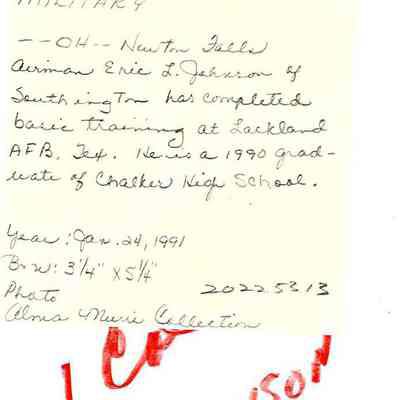 MILITARY
--OH-- Newton Falls
Airman Eric L. Johnson of
Southington has completed
basic training at Lackland
AFB, Tex. He is a 1990 grad-
uate of Chalker High School.
Year: Jan. 24, 1991
B&W: 3 1/4" x 5 1/4"
Photo
20225313
Alma Murie Collection